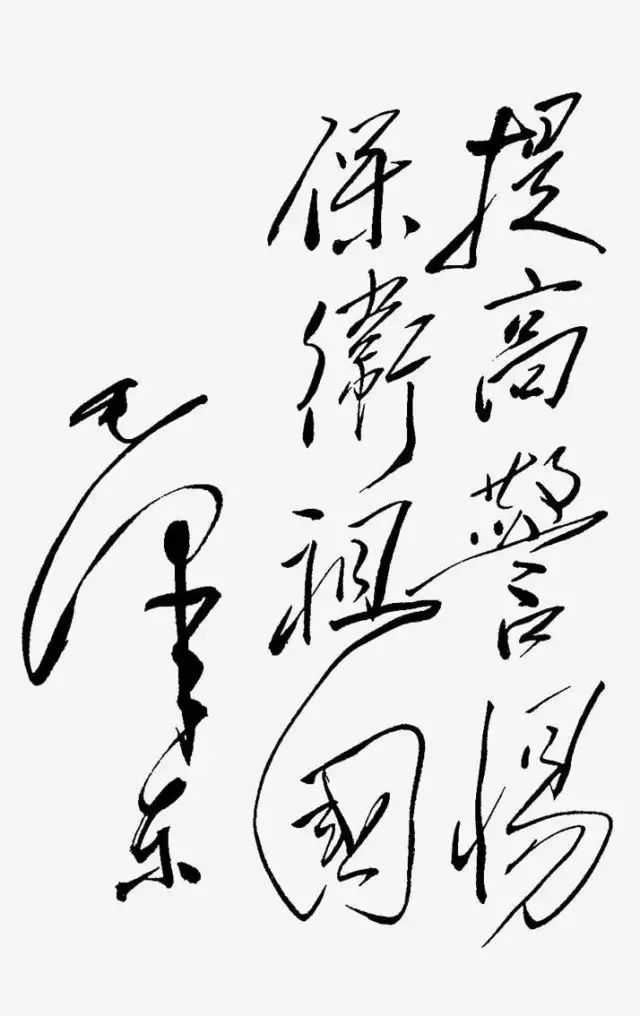 提高警惕
保衛祖國
毛泽东